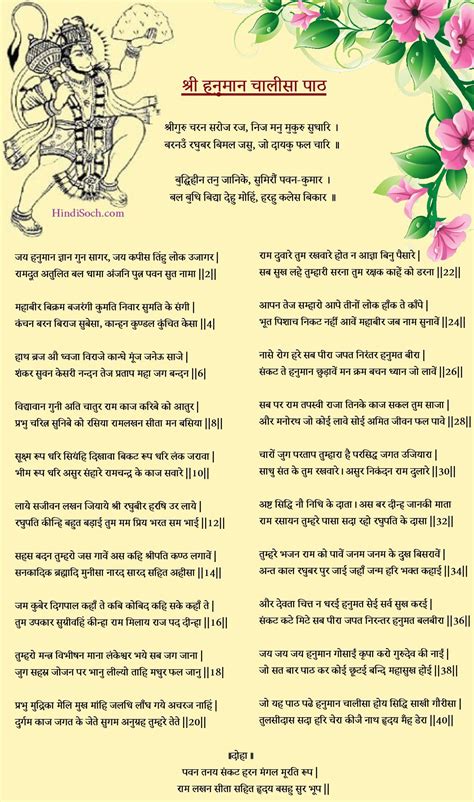 श्री हनुमान चालीसा पाठ
श्रीगुरु चरन सरोज रज, निज मनु मुकुरु सुधारि ।
बरनउँ रघुबर बिमल जसु, जो दायकु फल चारि ॥
बुद्धिहीन तनु जानिके, सुमिरौं पवन-कुमार ।
बल बुधि बिद्या देहु मोहिं, हरहु कलेस बिकार ॥
HindiSoch.com
जय हनुमान ज्ञान गुन सागर, जय कपीस तिंहु लोक उजागर |
रामदूत अतुलित बल धामा अंजनि पुत्र पवन सुत नामा ||2||
महाबीर बिक्रम बजरंगी कुमति निवार सुमति के संगी |
कंचन बरन बिराज सुबेसा, कान्हन कुण्डल कुंचित केसा ||4||
हाथ ब्रज औ ध्वजा विराजे कान्धे मूंज जनेऊ साजे |
शंकर सुवन केसरी नन्दन तेज प्रताप महा जग बन्दन ||6||
विद्यावान गुनी अति चातुर राम काज करिबे को आतुर |
प्रभु चरित्र सुनिबे को रसिया रामलखन सीता मन बसिया ||8||
सूक्ष्म रूप धरि सियंहि दिखावा बिकट रूप धरि लंक जरावा |
भीम रूप धरि असुर संहारे रामचन्द्र के काज सवारे ||10||
लाये सजीवन लखन जियाये श्री रघुबीर हरषि उर लाये |
रघुपति कीन्हि बहुत बड़ाई तुम मम प्रिय भरत सम भाई ||12||
सहस बदन तुम्हरो जस गावें अस कहि श्रीपति कण्ठ लगावें |
सनकादिक ब्रह्मादि मुनीसा नारद सारद सहित अहीसा ||14||
जम कुबेर दिगपाल कहाँ ते कबि कोबिद कहि सके कहाँ ते |
तुम उपकार सुग्रीवहिं कीन्हा राम मिलाय राज पद दीन्हा ||16||
तुम्हरो मन्त्र विभीषन माना लंकेश्वर भये सब जग जाना |
जुग सहस्र जोजन पर भानु लील्यो ताहि मधुर फल जानु ||18||
प्रभु मुद्रिका मेलि मुख मांहि जलधि लाँघ गये अचरज नाहिं |
दुर्गम काज जगत के जेते सुगम अनुग्रह तुम्हरे तेते ||20||
राम दुवारे तुम रखवारे होत न आज्ञा बिनु पैसारे |
सब सुख लहे तुम्हारी सरना तुम रक्षक काहें को डरना ||22||
आपन तेज सम्हारो आपे तीनों लोक हाँक ते काँपे |
भूत पिशाच निकट नहीं आवें महाबीर जब नाम सुनावें ||24||
नासे रोग हरे सब पीरा जपत निरंतर हनुमत बीरा |
संकट ते हनुमान छुड़ावें मन क्रम बचन ध्यान जो लावें ||26||
सब पर राम तपस्वी राजा तिनके काज सकल तुम साजा |
और मनोरथ जो कोई लावे सोई अमित जीवन फल पावे ||28||
चारों जुग परताप तुम्हारा है परसिद्ध जगत उजियारा |
साधु संत के तुम रखवारे । असुर निकंदन राम दुलारे ||30||
अष्ट सिद्धि नौ निधि के दाता । अस बर दीन्ह जानकी माता
राम रसायन तुम्हरे पासा सदा रहो रघुपति के दासा ||32||
तुम्हरे भजन राम को पावें जनम जनम के दुख बिसरावें |
अन्त काल रघुबर पुर जाई जहाँ जन्म हरि भक्त कहाई ||34||
और देवता चित्त न धरई हनुमत सेई सर्व सुख करई |
संकट कटे मिटे सब पीरा जपत निरन्तर हनुमत बलबीरा ||36||
जय जय जय हनुमान गोसाईं कृपा करो गुरुदेव की नाईं |
जो सत बार पाठ कर कोई छूटई बन्दि महासुख होई ||38||
जो यह पाठ पढे हनुमान चालीसा होय सिद्धि साखी गौरीसा |
तुलसीदास सदा हरि चेरा कीजै नाथ हृदय मँह डेरा ||40||
॥दोहा॥
पवन तनय संकट हरन मंगल मूरति रूप |
राम लखन सीता सहित हृदय बसहु सुर भूप ||